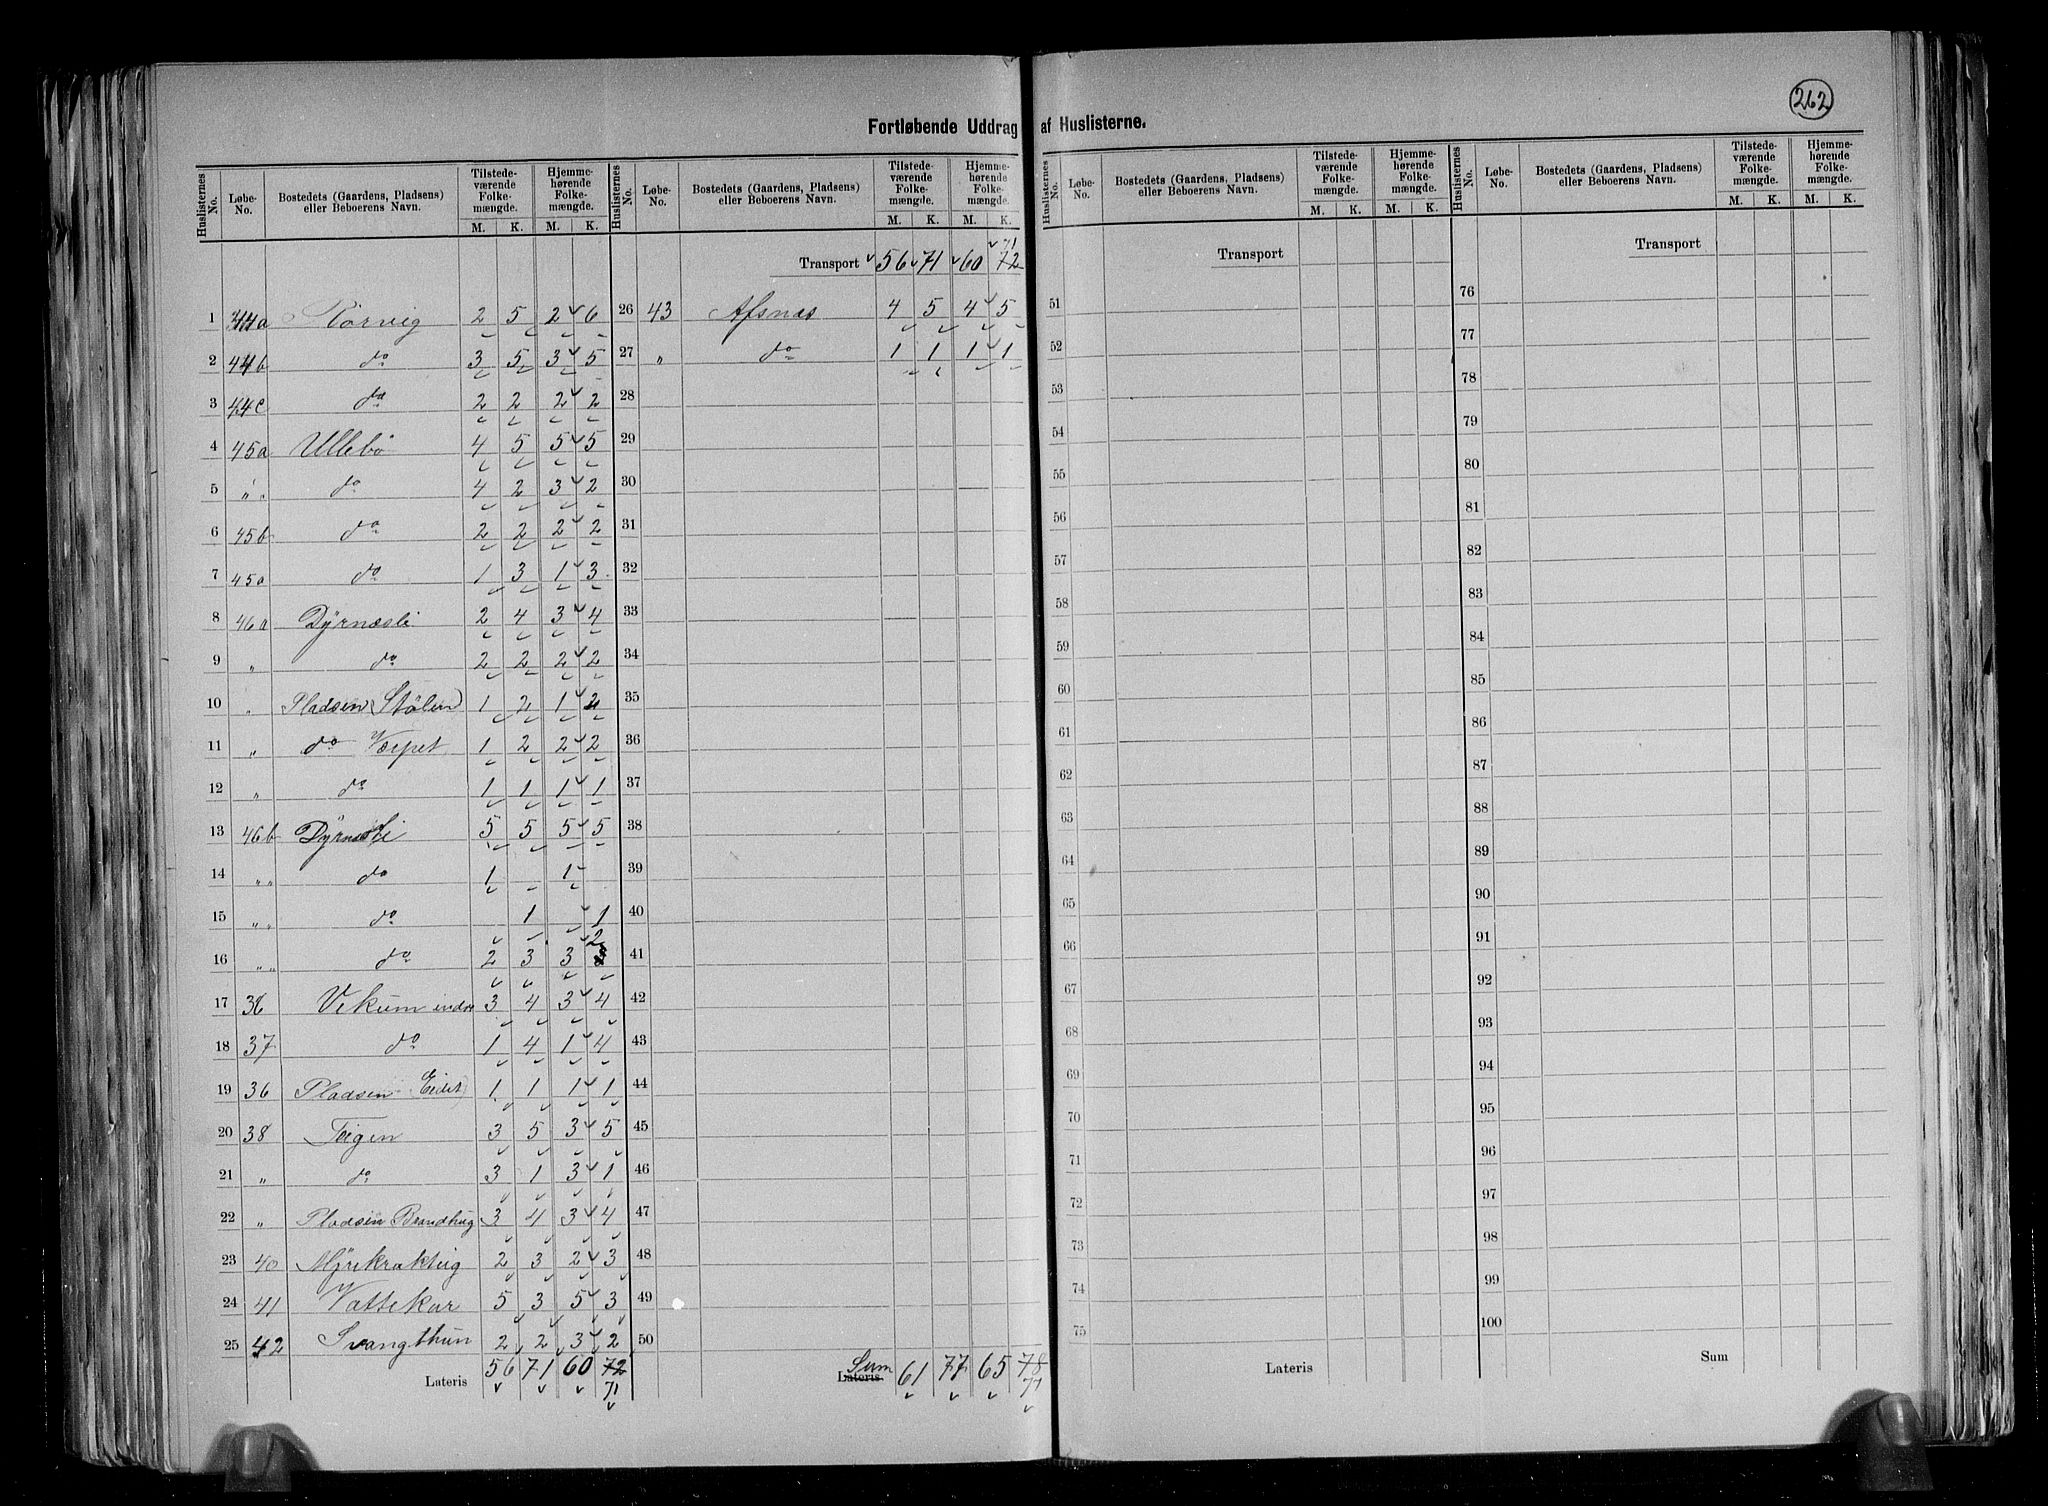 262
Fortløbende Uddrag af Huslisterne.
Huslisternes No. Løbe-No. Bostedets (Gaardens, Pladsens) eller Beboerens Navn. Tilstedeværende Folkemængde. M. K. Hjemmehørende Folkemængde. M. K.
1 44a 2 5 2 6
2 44b do 3 5 3 5
3 44c do 2 2 2 2
4 45a Ullebö 4 5 5 5
5 " " do 4 2 3 2
6 45b do 2 2 2 2
7 45a do 1 3 1 3
8 46a Dyrnæsli 2 4 3 4
9 " do 2 2 2 2
10 " Pladsen (Stølen) 1 2 1 2
11 " do Værpet 1 2 2 2
12 " do 1 1 1 1
13 46b Dyrnæsli 5 5 5 5
14 " " do 1 1
15 " " do 1 1
16 " " do 2 3 3 2
17 36 Vikum indre 3 4 3 4
18 37 do 1 4 1 4
19 36 Pladsen Eidet 1 1 1 1
20 38 Teigen 3 5 3 5
21 " do 3 1 3 1
22 " Pladsen Brandhug 3 4 3 4
23 40 2 3 2 3
24 41 Vattekar 5 3 5 3
25 42 Svangthun 2 2 3 2
Lateris 56 71 60 72 71
Huslisternes No. Løbe-No. Bostedets (Gaardens, Pladsens) eller Beboerens Navn. Tilstedeværende Folkemængde. M. K. Hjemmehørende Folkemængde. M. K.
Transport 56 71 60 72 71
26 43 Afsnæs 4 5 4 5
27 " do 1 1 1 1
28
29
30
31
32
33
34
35
36
37
38
39
40
41
42
43
44
45
46
47
48
49
50
Lateris Sum 61 77 65 78 77
Huslisternes No. Løbe-No. Bostedets (Gaardens, Pladsens) eller Beboerens Navn. Tilstedeværende Folkemængde. M. K. Hjemmehørende Folkemængde. M. K.
Transport
51
52
53
54
55
56
57
58
59
60
61
62
63
64
65
66
67
68
69
70
71
72
73
74
75
Lateris
Huslisternes No. Løbe-No. Bostedets (Gaardens, Pladsens) eller Beboerens Navn. Tilstedeværende Folkemængde. M. K. Hjemmehørende Folkemængde. M. K.
Transport
76
77
78
79
80
81
82
83
84
85
86
87
88
89
90
91
92
93
94
95
96
97
98
99
100
Sum